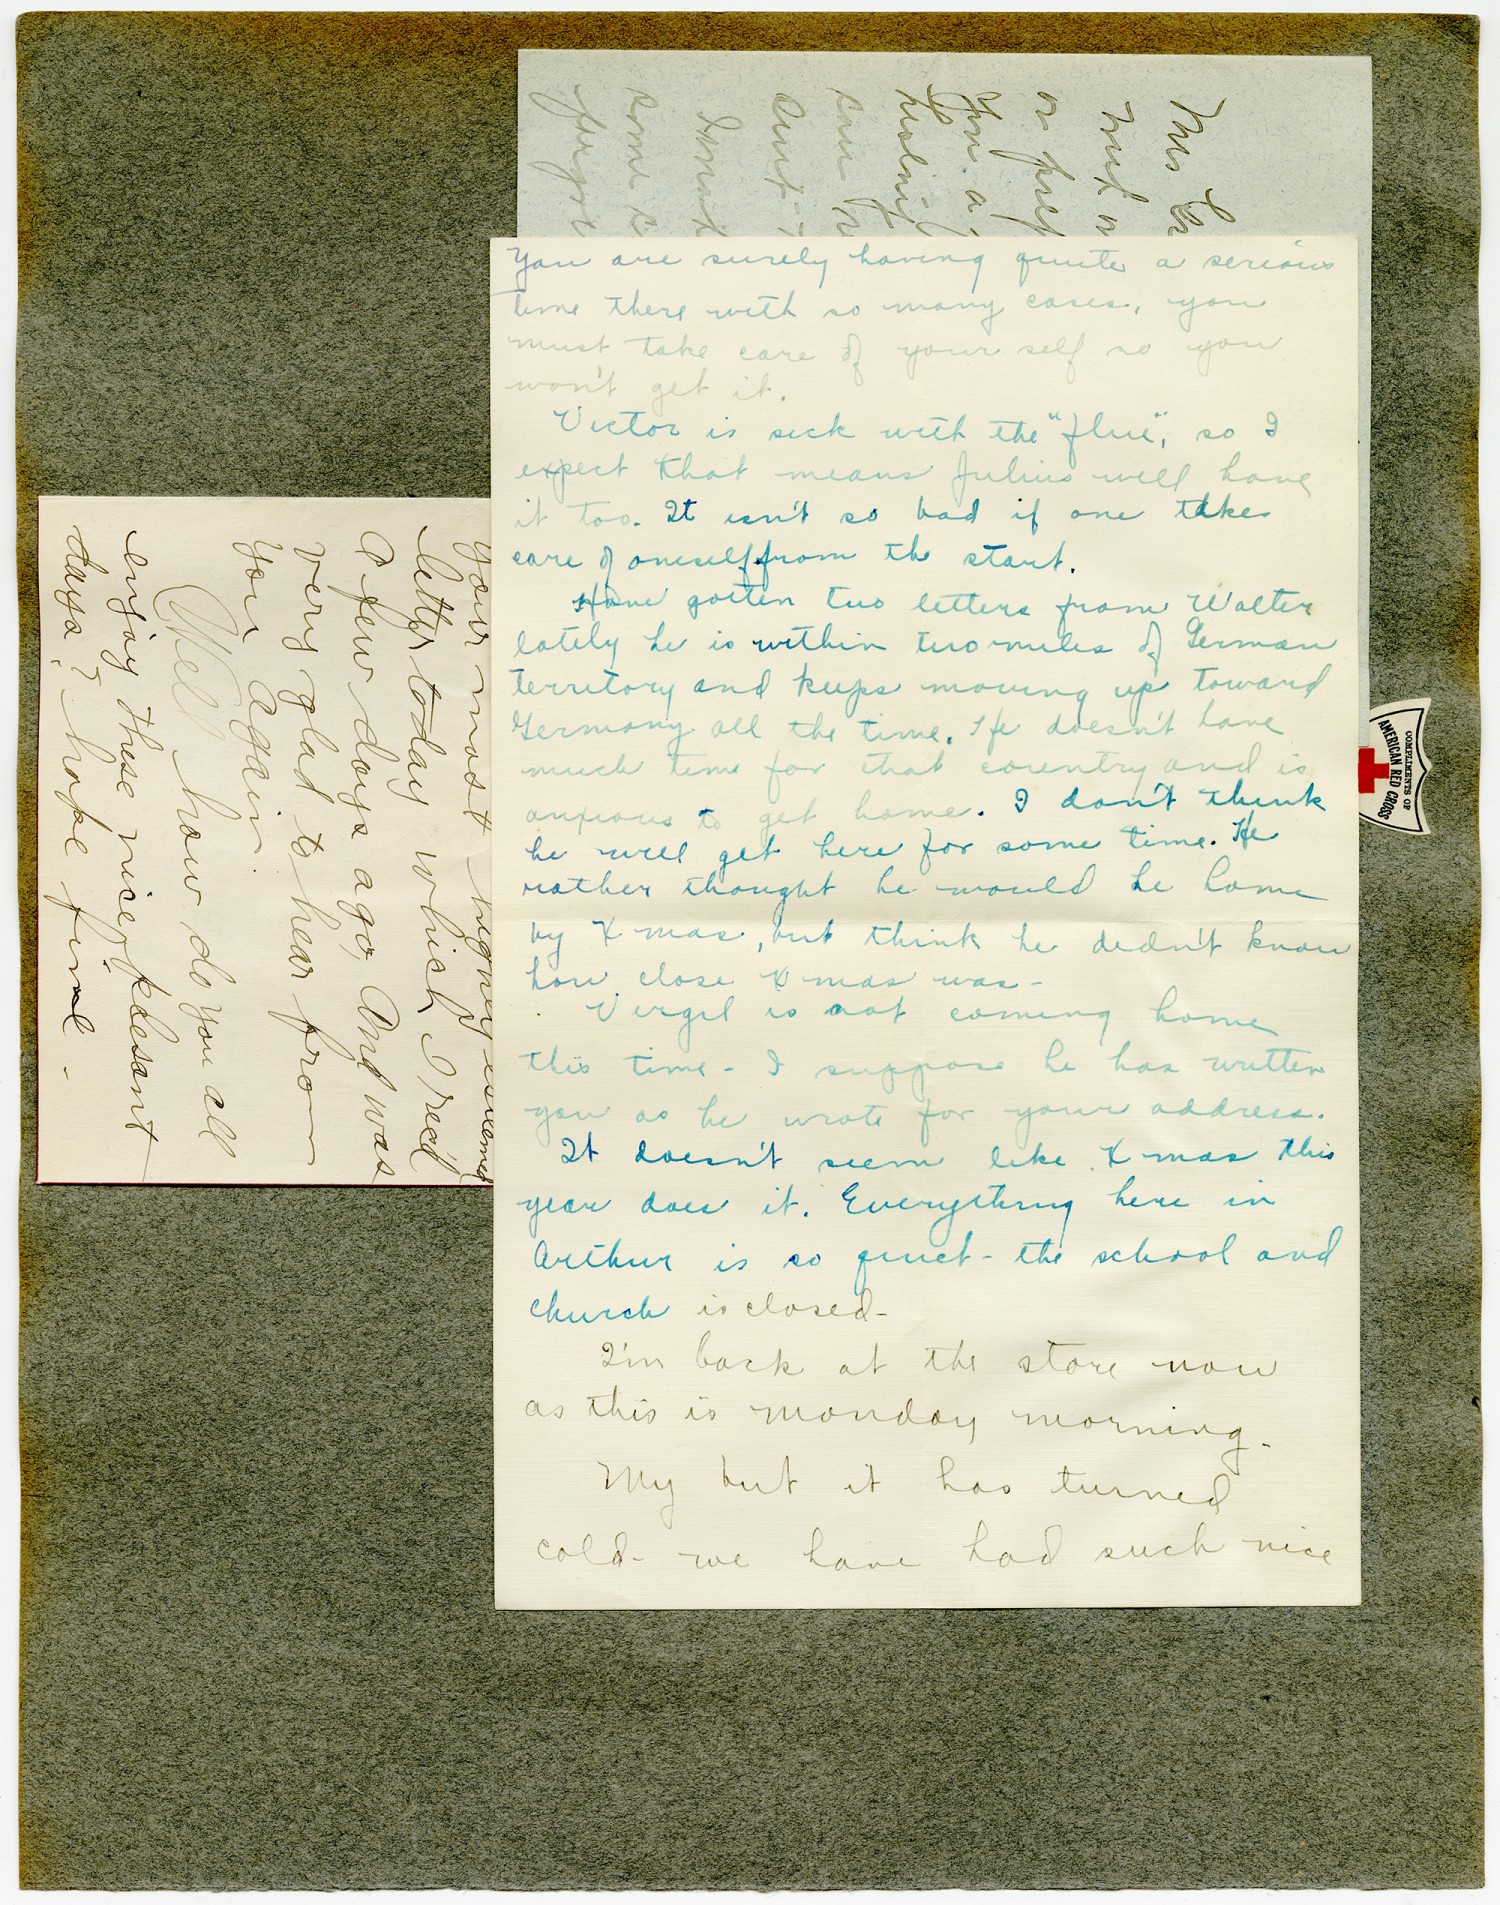 You are surely having quite a serious
time there with so many cases, you
must take care of your self so you
won't get it.
Victor is sick with the "flue", so I
expect that means Julius will have
it too. It isn't so bad if one takes
care of oneself from the start.
Have gotten two letters from Walter
lately he is within two miles of German
territory and keeps moving up toward
Germany all the time. He doesn't have
much time for that country and is
anxious to get home. I don't think
he will get here for some time. He
rather thought he would be home
by Xmas, but think he didn't know
how close Xmas was -
Virgil is not coming home
this time - I suppose he has written
you as he wrote for your address.
It doesn't seem like Xmas this
year does it. Everything here in
Arthur is so quiet - the school and
church is closed -
I'm back at the store now
as this is monday morning -
My but it has turned
cold - we have had such nice
your most highley esteemed
letter today which I rec'd
a few days ago, And was
very glad to hear from
you again.
Well how do you all
enjoy these nice plesant
days? hope fine -
Mrs
or
You a
can
some
COMPLIMENTS OF
AMERICAN RED CROSS